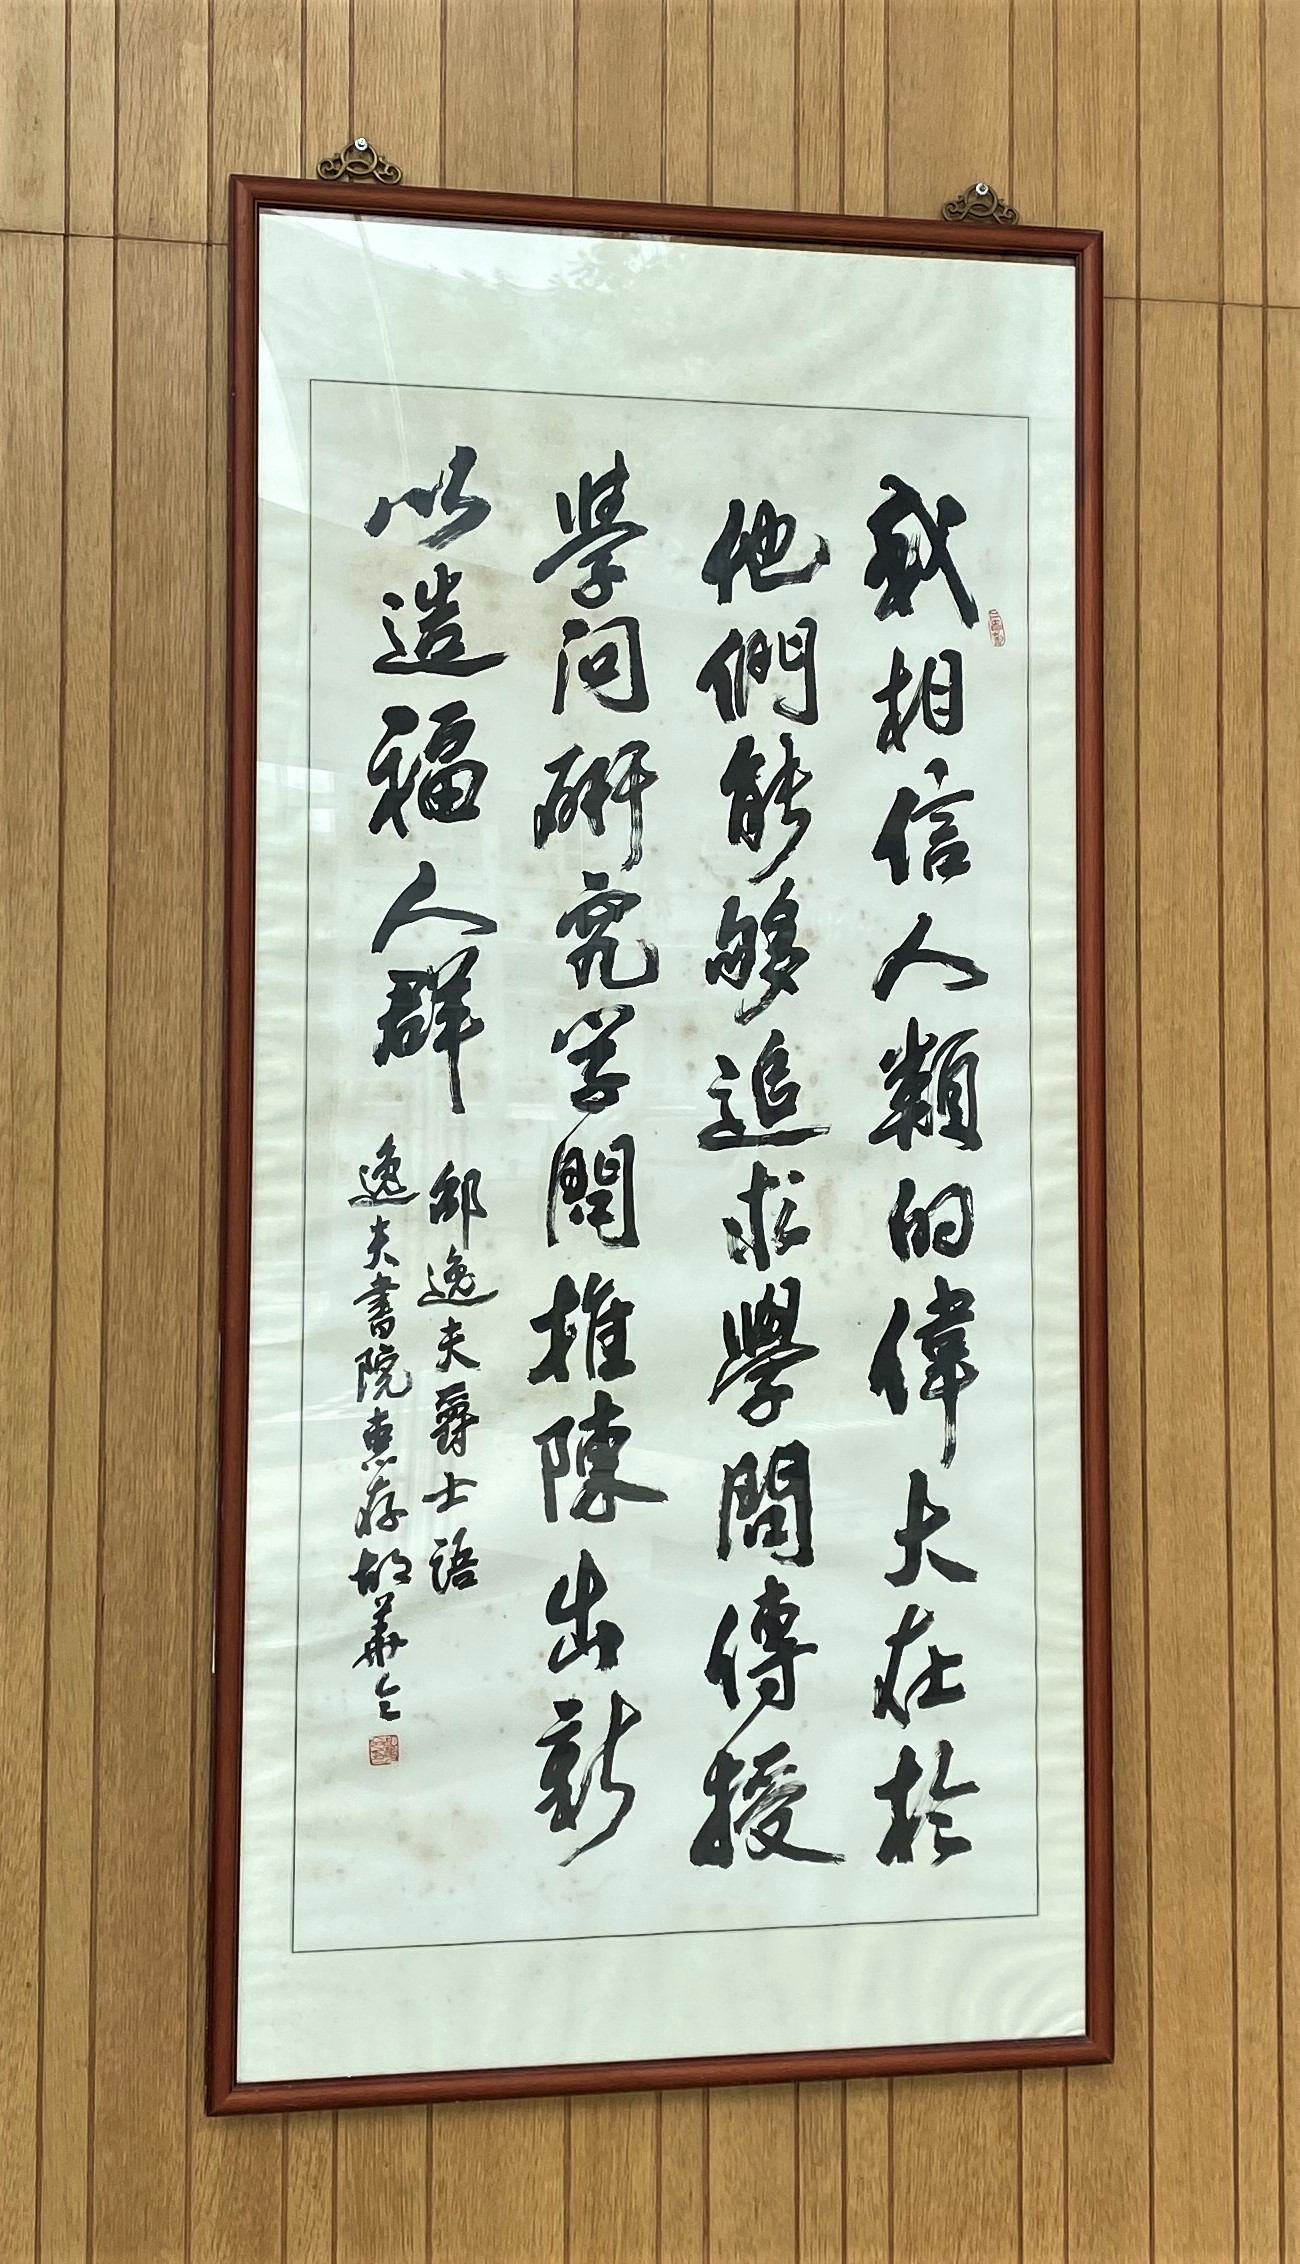 我相信人類的偉大在於
他們能夠追求學問傳授
學问研究学問推陳出新
以造福人群
邵逸夫爵士語
逸夫書院惠存